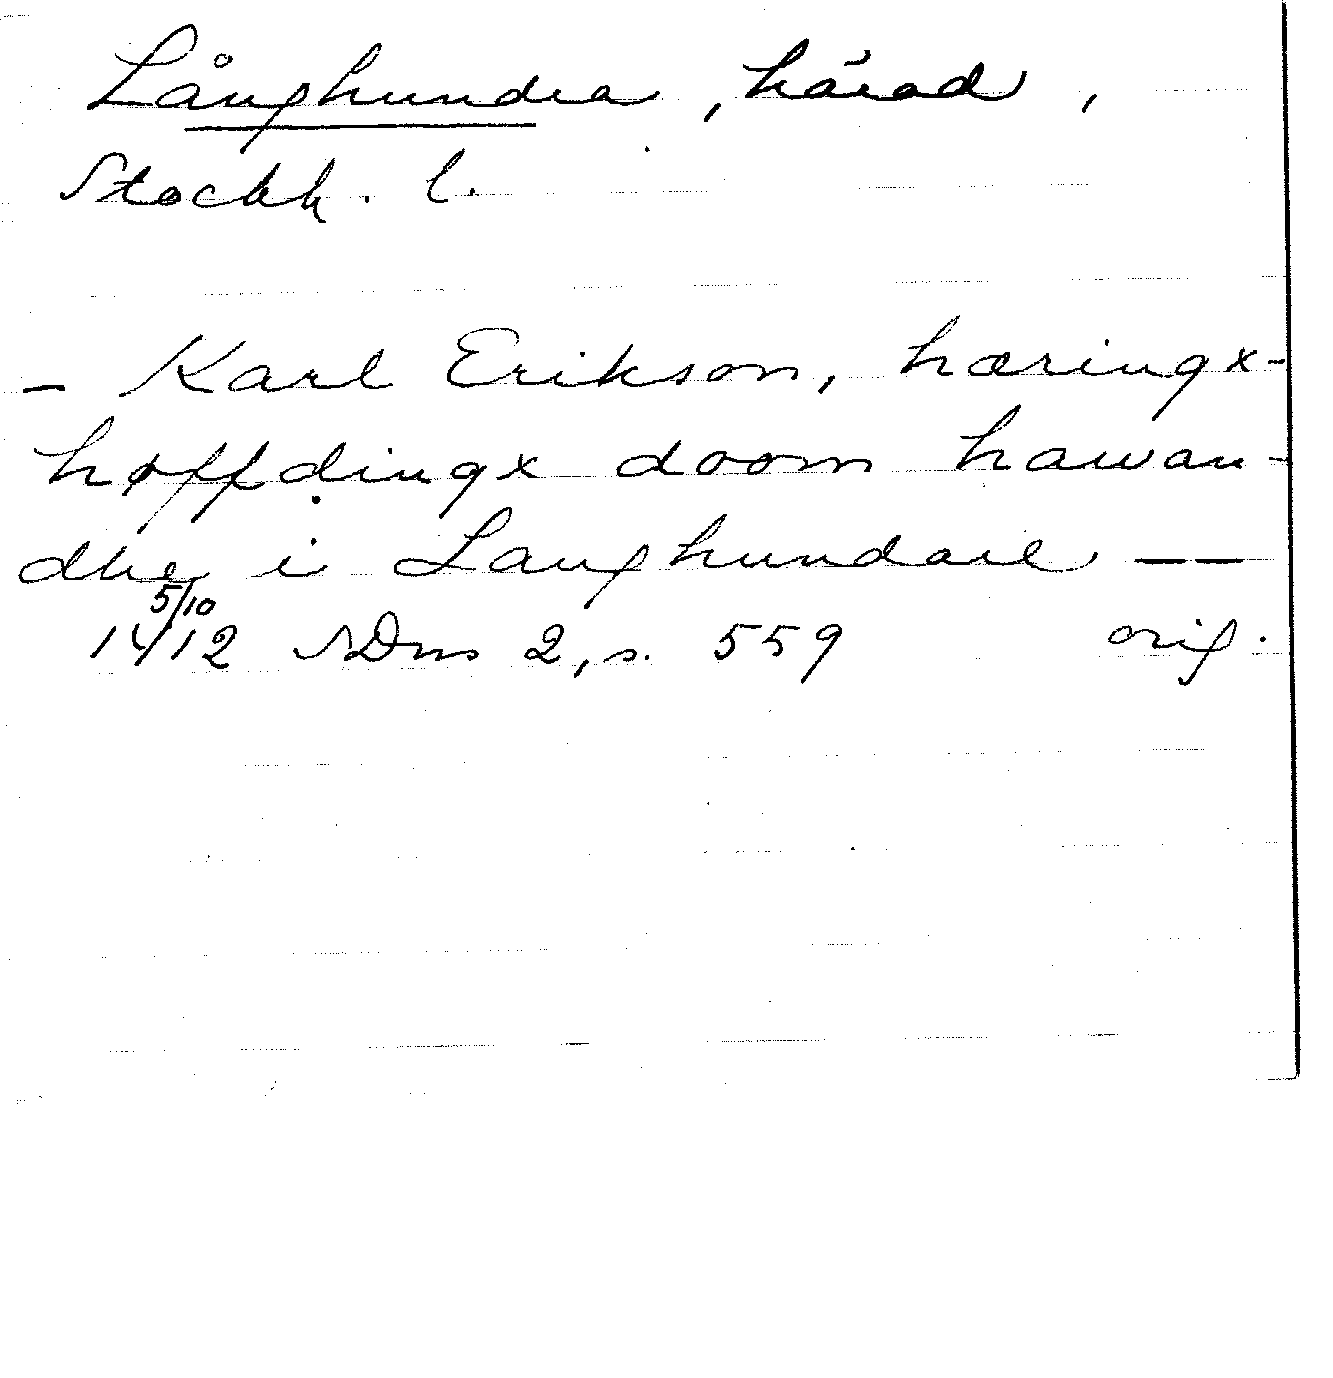 Långhundra, härad,
Stockh. l.
- Karl Erikson, hæringx-
høffdingx doom hawan-
dhe i Langhundare —
5/10
1412 SDns 2, s. 559 orig.